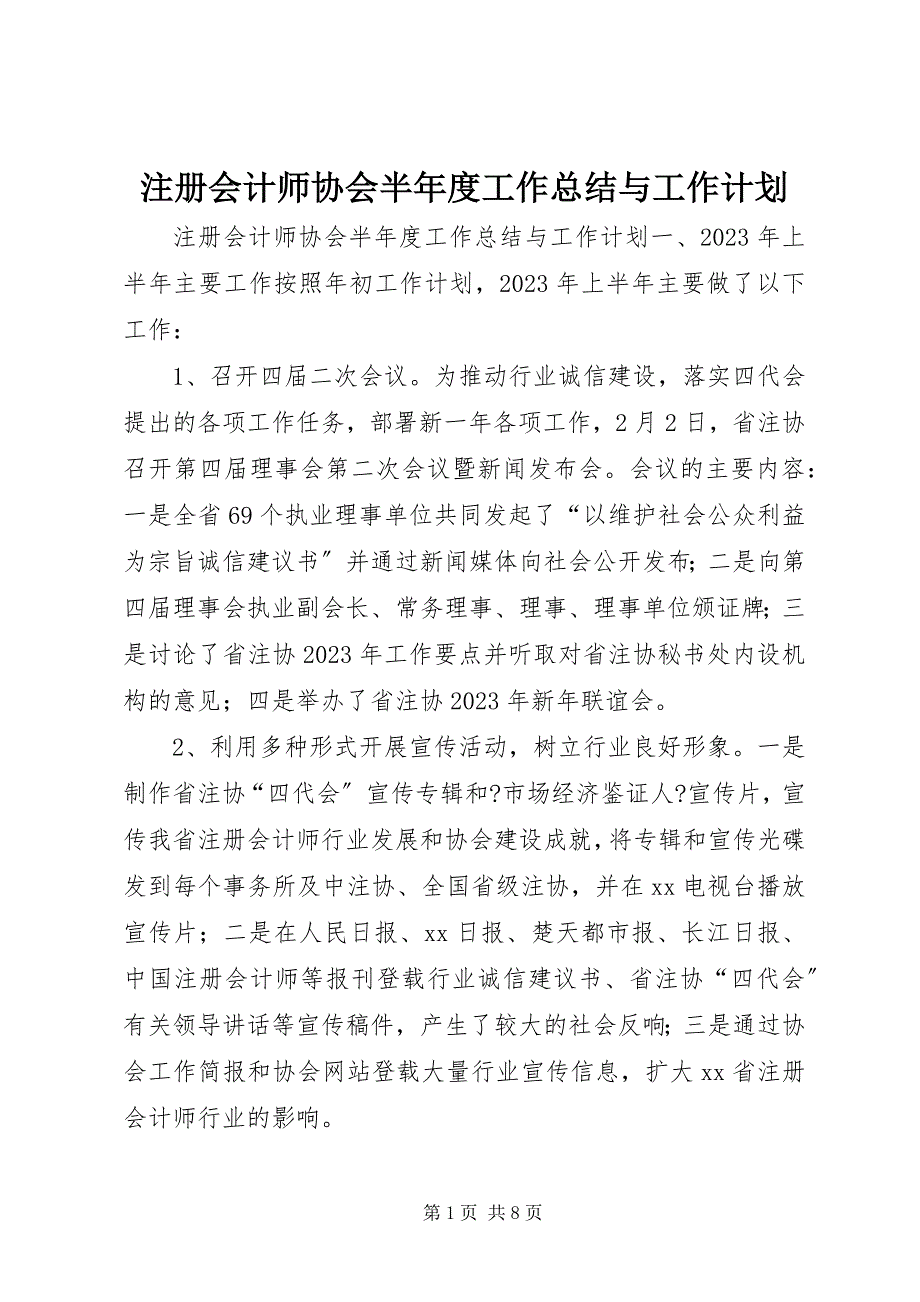 注册会计师协会半年度工作总结与工作计划
注册会计师协会半年度工作总结与工作计划一、2023 年上
半年主要工作按照年初工作计划，2023 年上半年主要做了以下
工作：
1、召开四届二次会议。为推动行业诚信建设，落实四代会
提出的各项工作任务，部署新一年各项工作，2 月 2 日，省注协
召开第四届理事会第二次会议暨新闻发布会。会议的主要内容：
一是全省 69 个执业理事单位共同发起了“以维护社会公众利益
为宗旨诚信建议书〞并通过新闻媒体向社会公开发布；二是向第
四届理事会执业副会长、常务理事、理事、理事单位颁证牌；三
是讨论了省注协 2023 年工作要点并听取对省注协秘书处内设机
构的意见；四是举办了省注协 2023 年新年联谊会。
2、利用多种形式开展宣传活动，树立行业良好形象。一是
制作省注协“四代会〞宣传专辑和?市场经济鉴证人?宣传片，宣
传我省注册会计师行业发展和协会建设成就，将专辑和宣传光碟
发到每个事务所及中注协、全国省级注协，并在 xx 电视台播放
宣传片；二是在人民日报、xx 日报、楚天都市报、长江日报、
中国注册会计师等报刊登载行业诚信建议书、省注协“四代会〞
有关领导讲话等宣传稿件，产生了较大的社会反响；三是通过协
会工作简报和协会网站登载大量行业宣传信息，扩大 xx 省注册
会计师行业的影响。
第 1 页 共 8 页